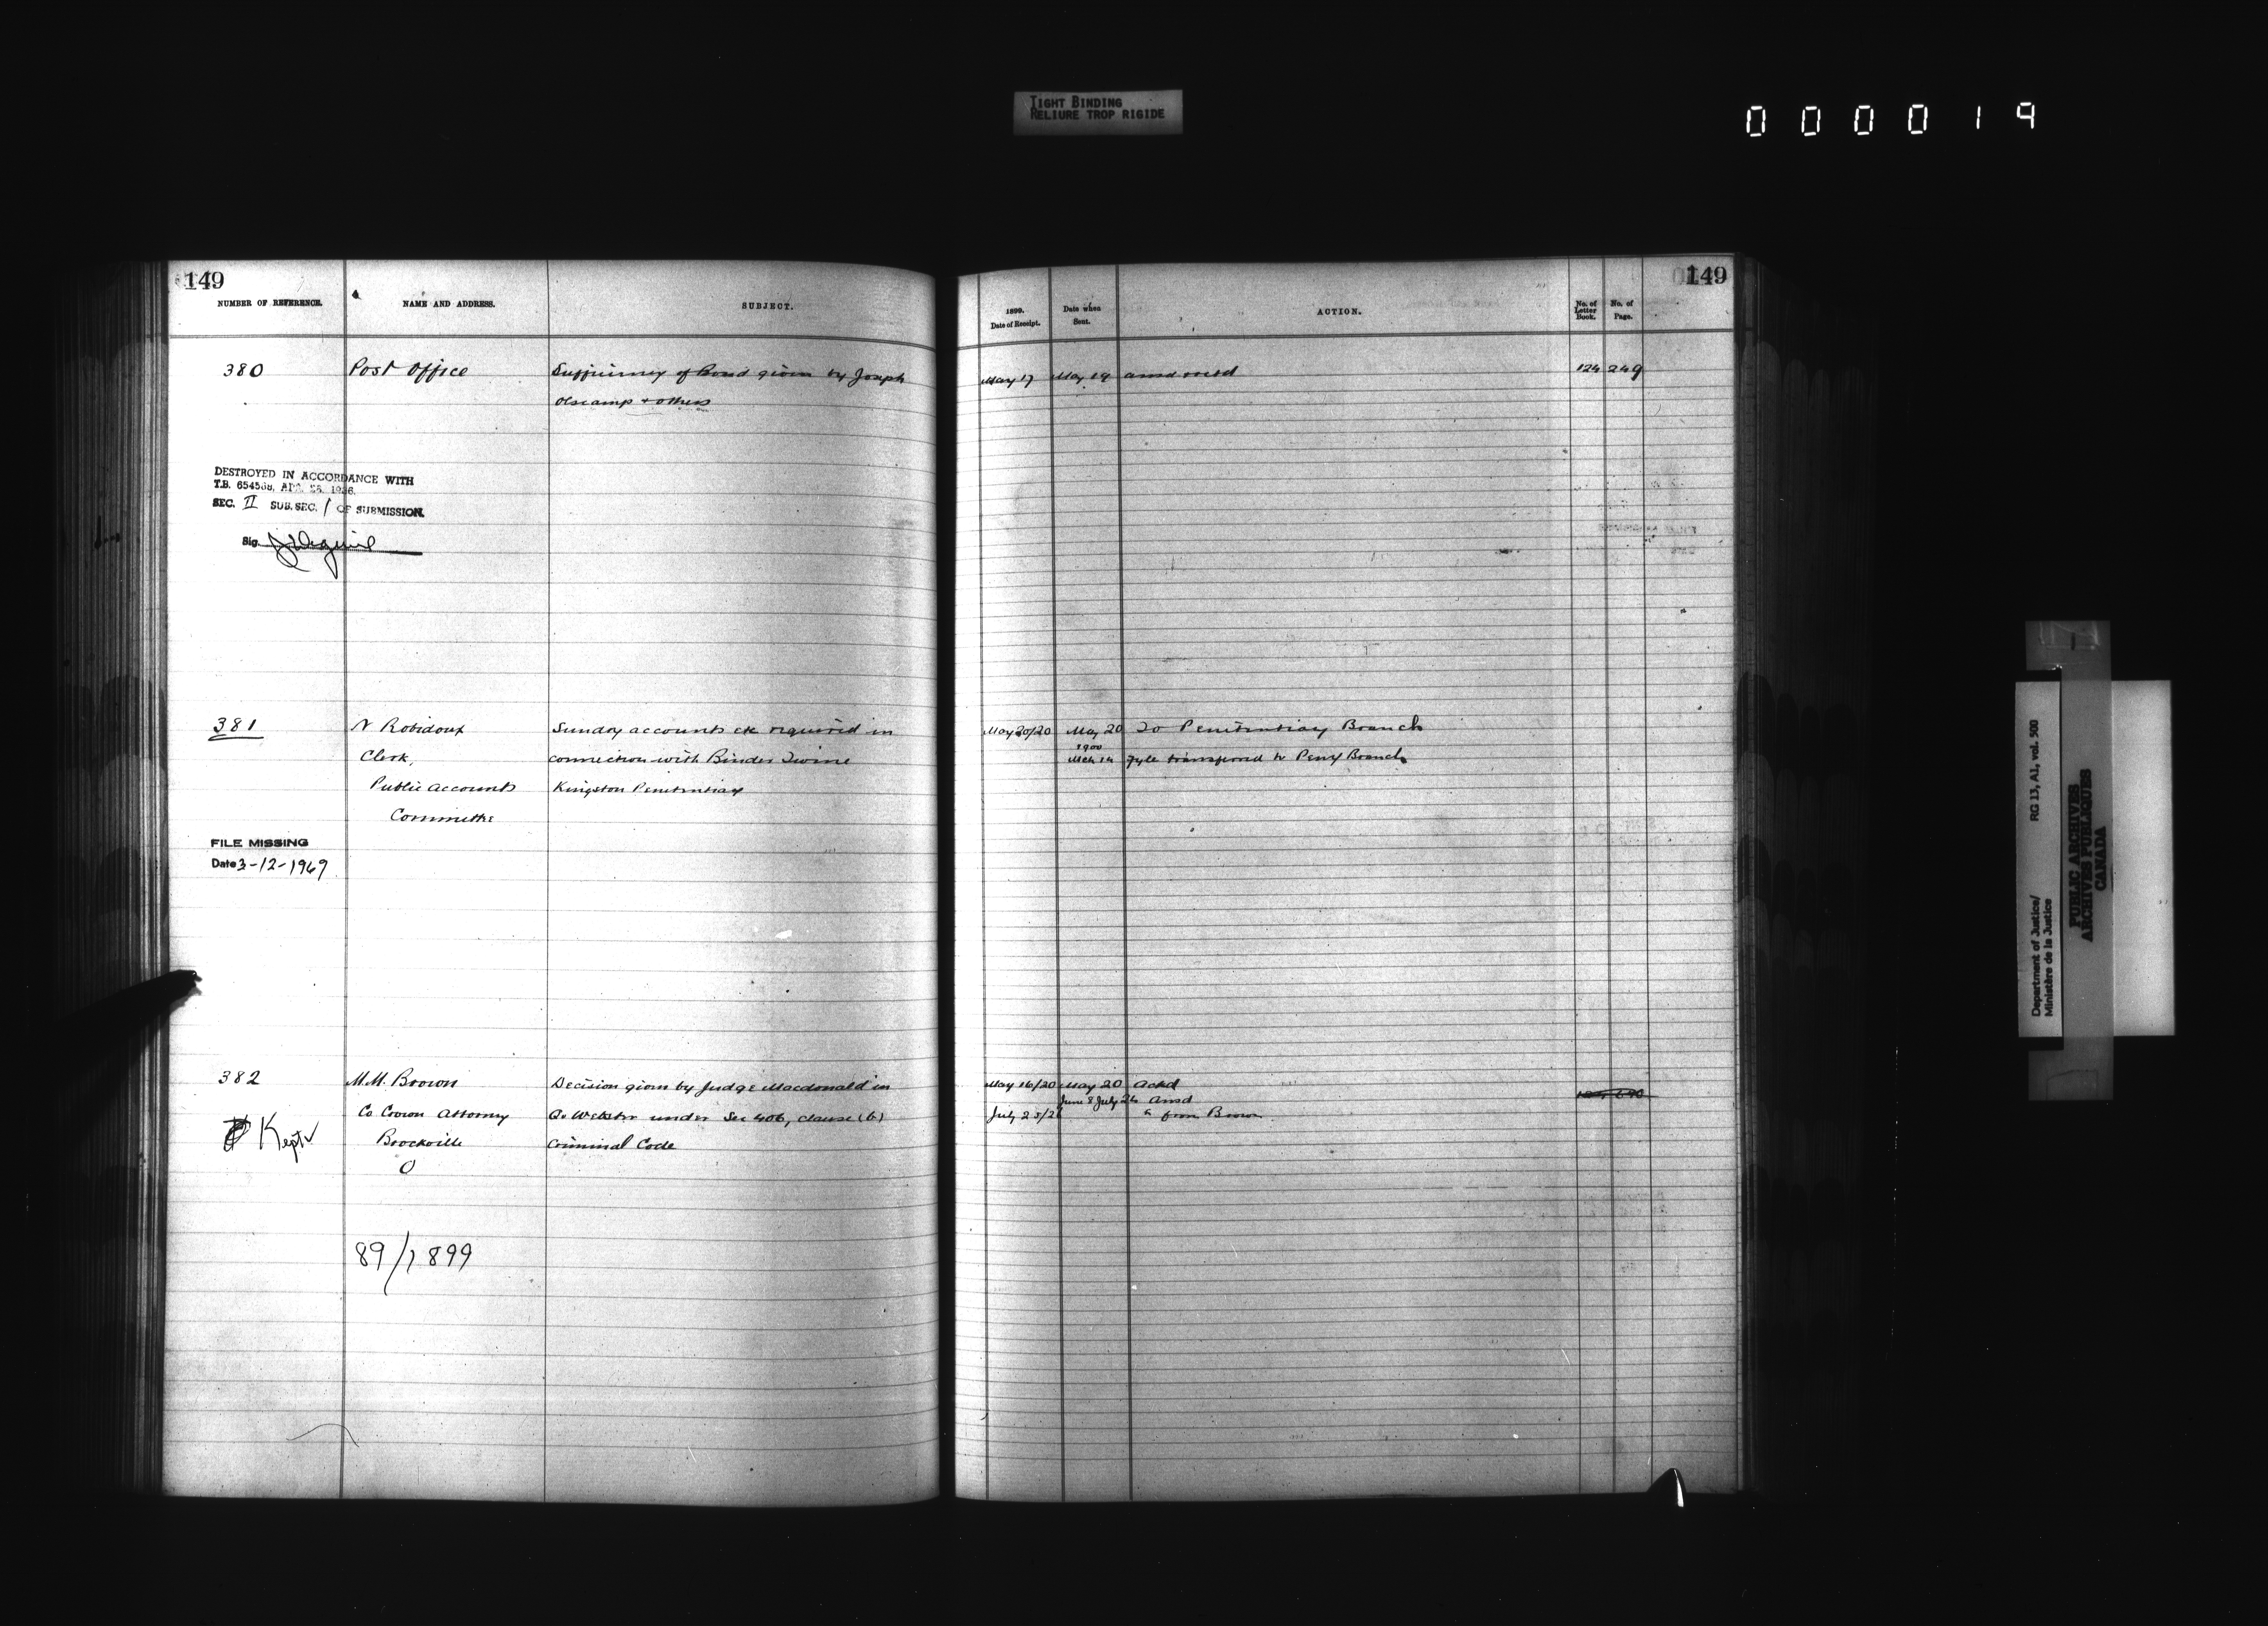 TIGHT BINDING
RELIURE TROP RIGIDE
000019
149
NUMBER OF REFERENCE.
NAME AND ADDRESS.
SUBJECT.
380
Post Office
Sufficiency of Bond given by Joseph
Olscamp + others
DESTROYED IN ACCORDANCE WITH
T.B. 654538, APR. 26, 1956
SEC. II SUB. SEC. 1 OF SUBMISSION.
Sig.
381
N Robidoux
Clerk,
Public Accounts
Committee
Sundry accounts etc required in
connection with Binder Twine
Kingston Penitentiary
FILE MISSING
Date 3-12-1967
382
Kept
M.M. Brown
Co Crown Attorney
Brockville
O
Decision given by Judge Macdonald in
Q v Webster under Sec 406, clause (b)
Criminal Code
89/1899
149
1899.
Date of Receipt.
Date when
Sent.
ACTION.
No. of
Letter
Book.
No. of
Page.
May 17 May 19 124 249
May 20/20 May 20 To Penitentiary Branch
1900
Mch 14 Fyle transferred to Peny Branch
May 16/20 May 20 Ackd
June 8 July 26 Ansd
July 25/26 " from Brown
Department of Justice/
Ministère de la Justice
RG 13, A1, vol. 500
PUBLIC ARCHIVES
ARCHIVES PUBLIQUES
CANADA